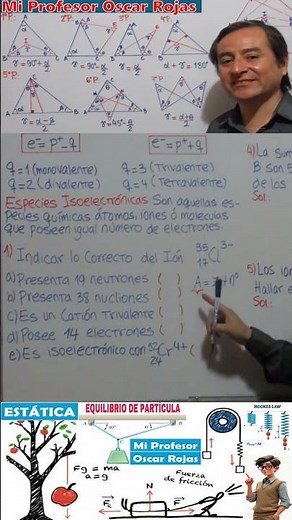 Mi Profesor Oscar Rojas
1°P.
2°P.
3°P.
4°P.
γ = 90°+α/2
γ = 90°-α/2
α+γ=180°
5°P.
6°P.
γ=α-β/2
γ=45°-β/2
γ=α+β/2
e⁻=P⁺-q
e⁻=P⁺+q
q=1 (monovalente)
q=3 (Trivalente)
q=2 (divalente)
q=4 (Tetravalente)
Especies Isoelectrónicas Son aquellas es-
pecies químicas átomas, iones ó moleculas
que poseen igual número de electrones.
1) Indicar lo Correcto del Ión ³⁵₁₇Cl³⁻
a) Presenta 19 neutrones ( )
b) Presenta 38 nucliones ( )
c) Es un Catión Trivalente ( )
d) Posee 14 electrones ( )
e) Es isoelectrónico con ⁵²₂₄Cr⁴⁺ (
4) La suma
B son 5
de los
Sol:
5) Los ion
Hallar e
Sol:
ESTÁTICA
EQUILIBRIO DE PARTICULA
HOOKES LAW
Mi Profesor
Oscar Rojas
Fg = ma
a=g
Fuerza
de fricción
N